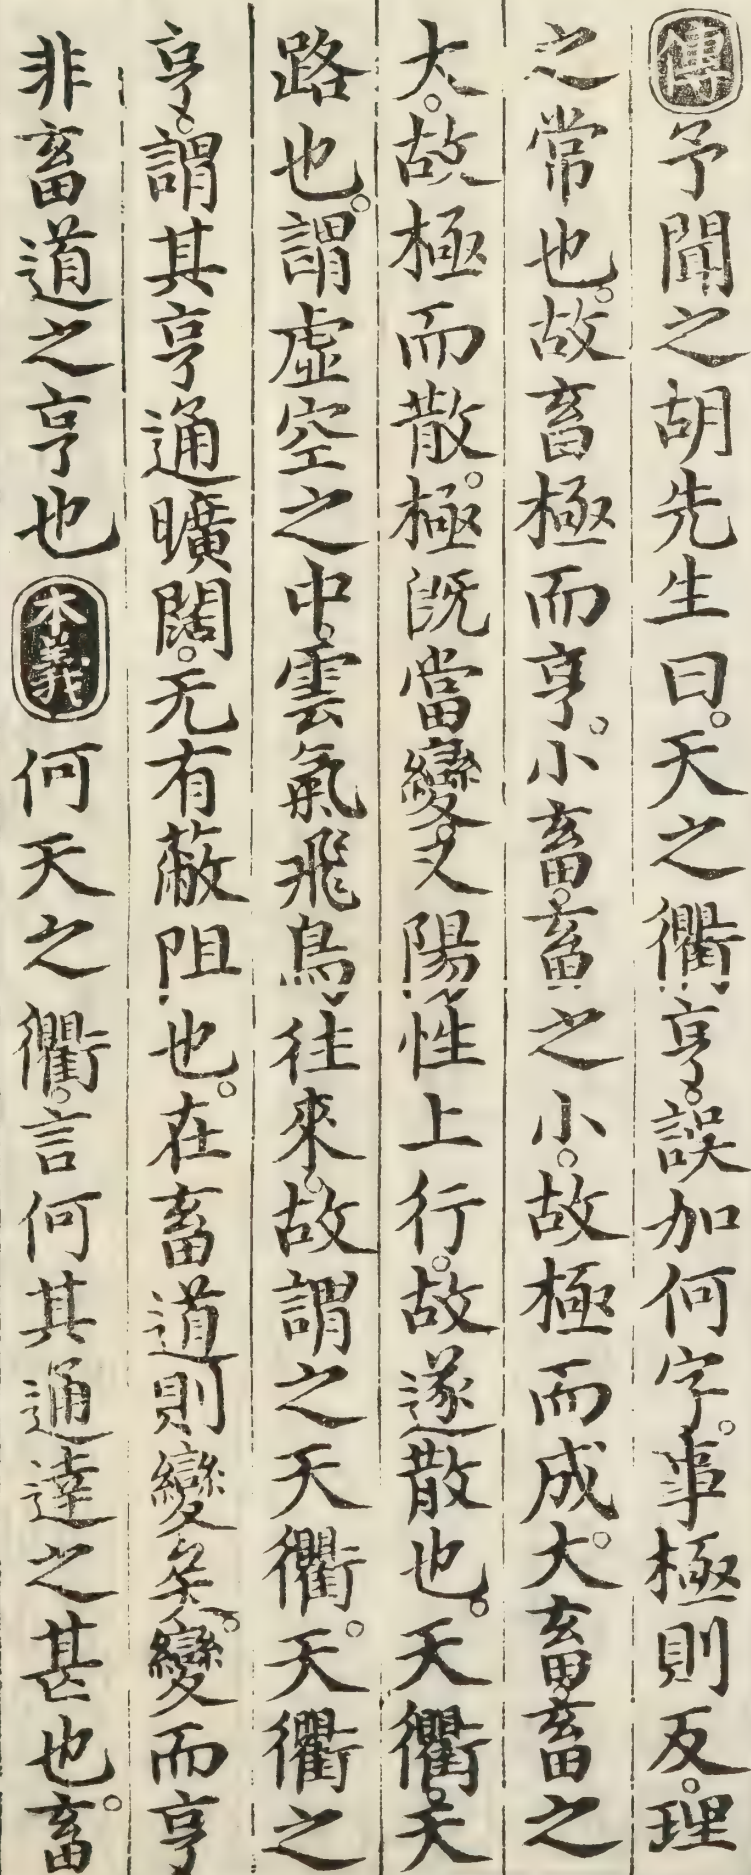 傳予聞之胡先生曰。天之衢亨。誤加何字。事極則反。理
之常也。故畜極而亨。小畜。畜之小。故極而成。大畜。畜之
大。故極而散。極既當變。又陽性上行。故遂散也。天衢。天
路也。謂虛空之中。雲氣飛鳥往來。故謂之天衢。天衢之
亨。謂其亨通曠闊。无有蔽阻也。在畜道則變矣。變而亨
非畜道之亨也本義何天之衢。言何其通達之甚也。畜